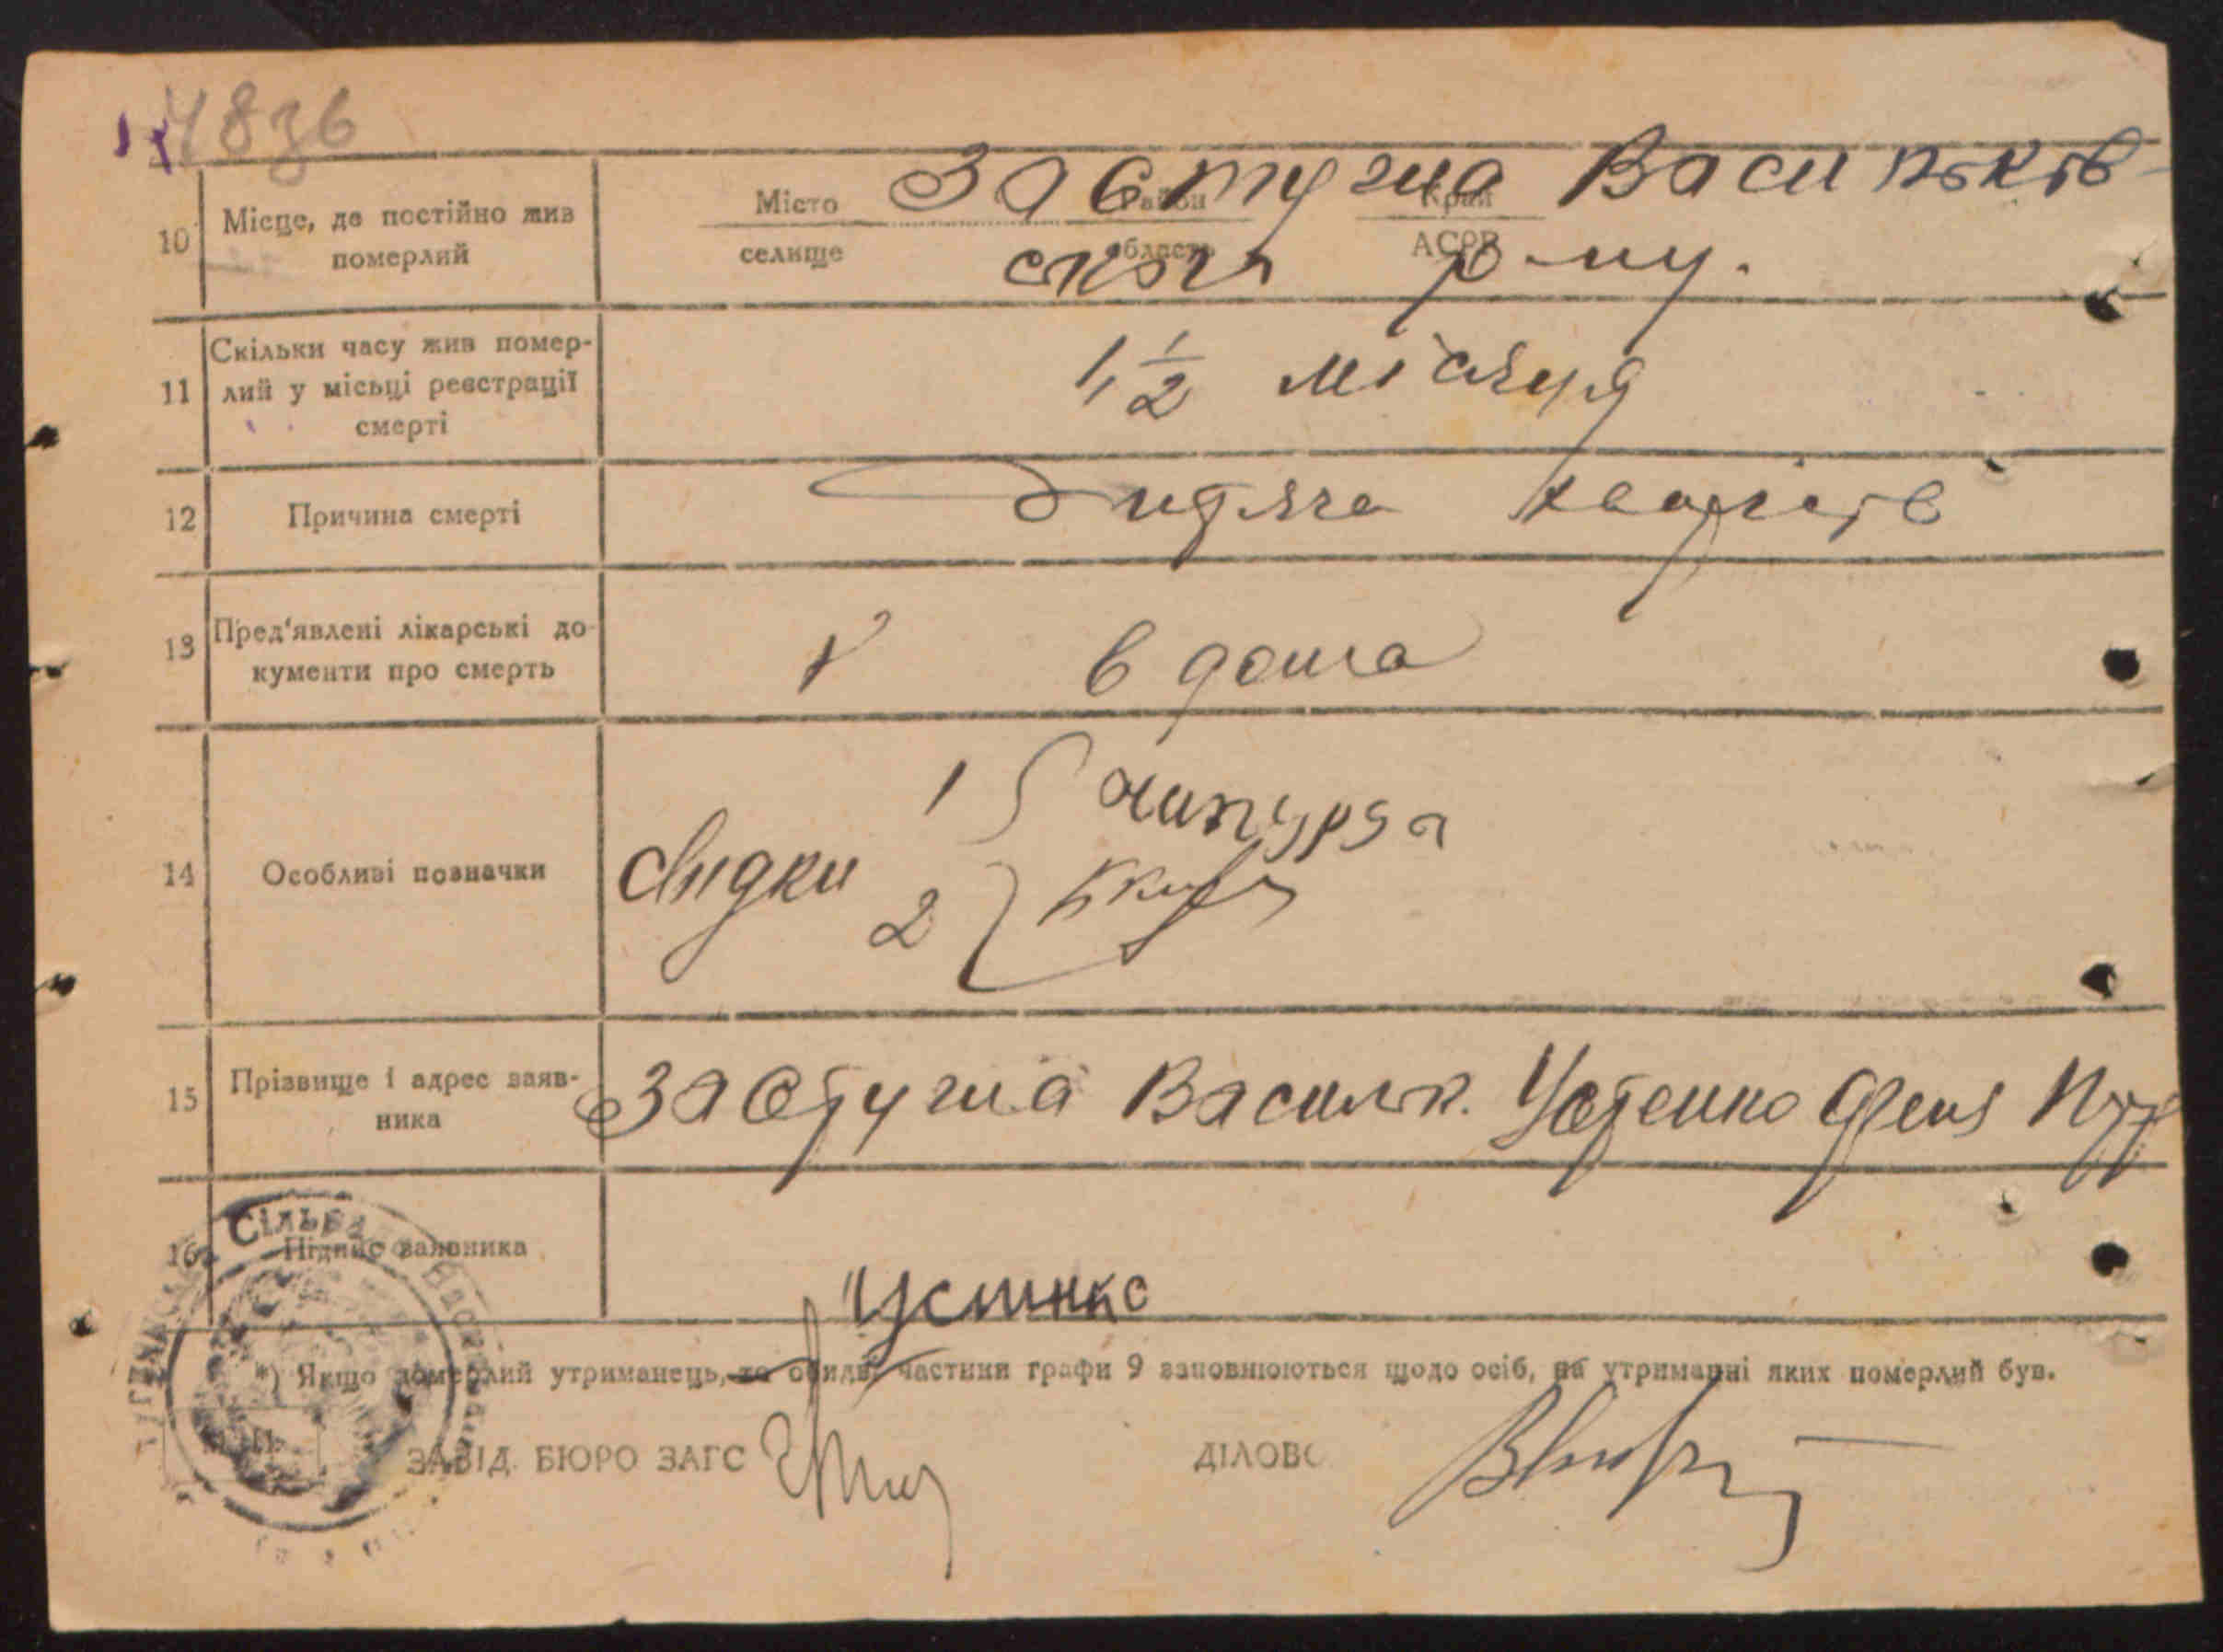 4836
10 Місце, де постійно жив померлий
Місто селище Район область Край АСРР
Застугна Васильків
ськи р-ну.
11 Скільки часу жив помер-
лий у місьці реєстрації
смерті
1 1/2 місяця
12 Причина смерті
Дитяча
13 Пред'явлені лікарські до-
кументи про смерть
в дома
14 Особливі позначки
свидки
1
2
15 Прізвище і адрес заяв-
ника
Застугна Васильк. Устенко
16 Підпис заявника
*) Якщо померлий утриманець, то обидві частини графи 9 заповнюються щодо осіб, на утриманні яких померлий був.
ЗАВІД. БЮРО ЗАГС
ДІЛОВО